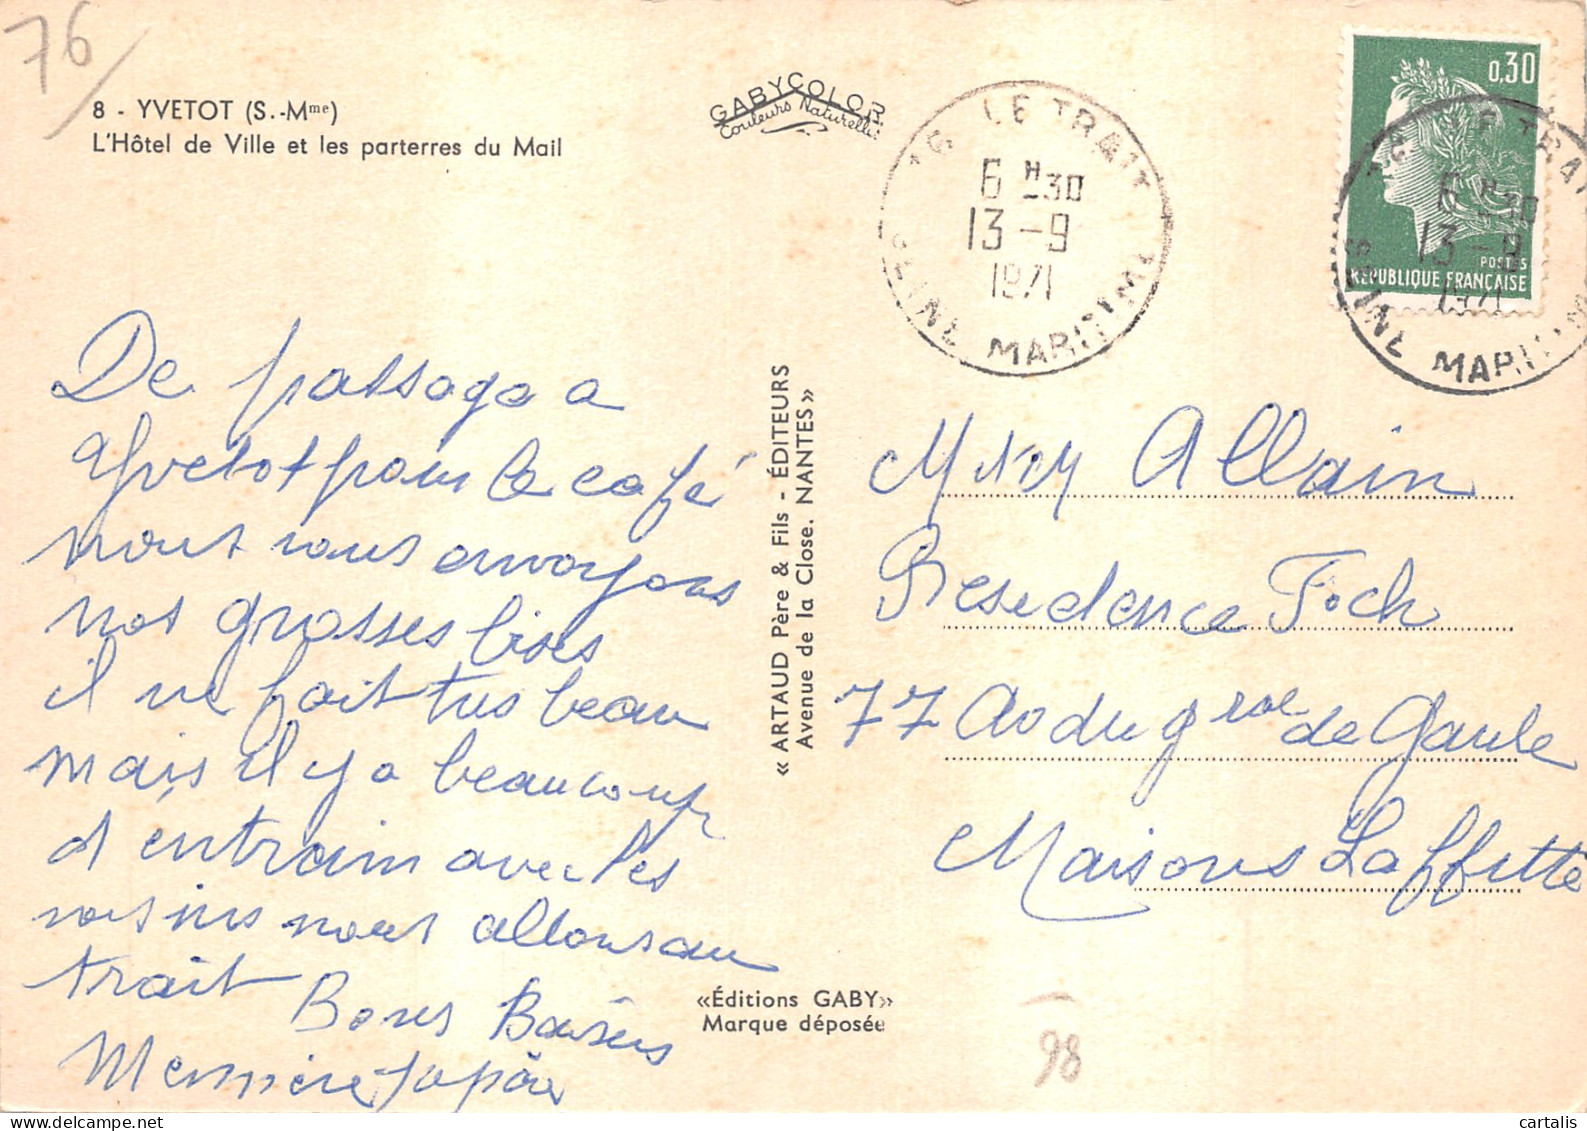 76/
8 - YVETOT (S.-Mme)
L'Hôtel de Ville et les parterres du Mail
GABYCOLOR
Couleurs Naturelles
76 LE TRAIT
6 H 30
13 - 9
1971
SEINE MARITIME
0,30
POSTES
REPUBLIQUE FRANÇAISE
76 LE TRAIT
6 H 30
13 - 9
1971
SEINE MARITIME
De passage a
Yvetot pour le café
nous vous envoyons
nos grosses bises
il ne fait tres beau
mais il y a beaucoup
d'entrain avec les
voisins nous allons au
trait Bons Baisers
Memere papa
« ARTAUD Père & Fils - ÉDITEURS
Avenue de la Close. NANTES »
Allain
Residence Foch
77 Av du gral de Gaule
Maisons Laffitte
«Éditions GABY»
Marque déposée
98